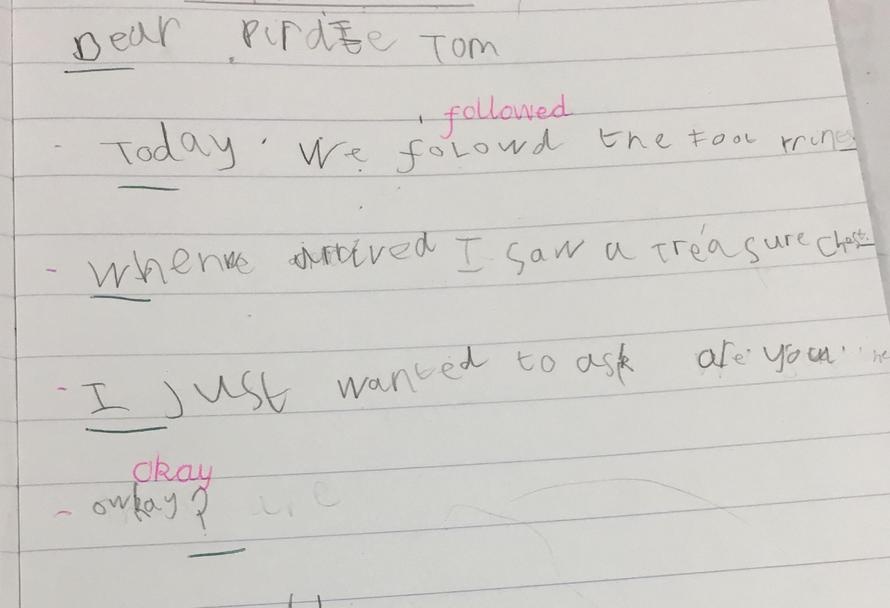 Dear Pirdte Tom
followed
- Today We folowd the foot prints
- When we arrived I saw a treasure Chest.
- I just wanted to ask are you
okay
- owkay?